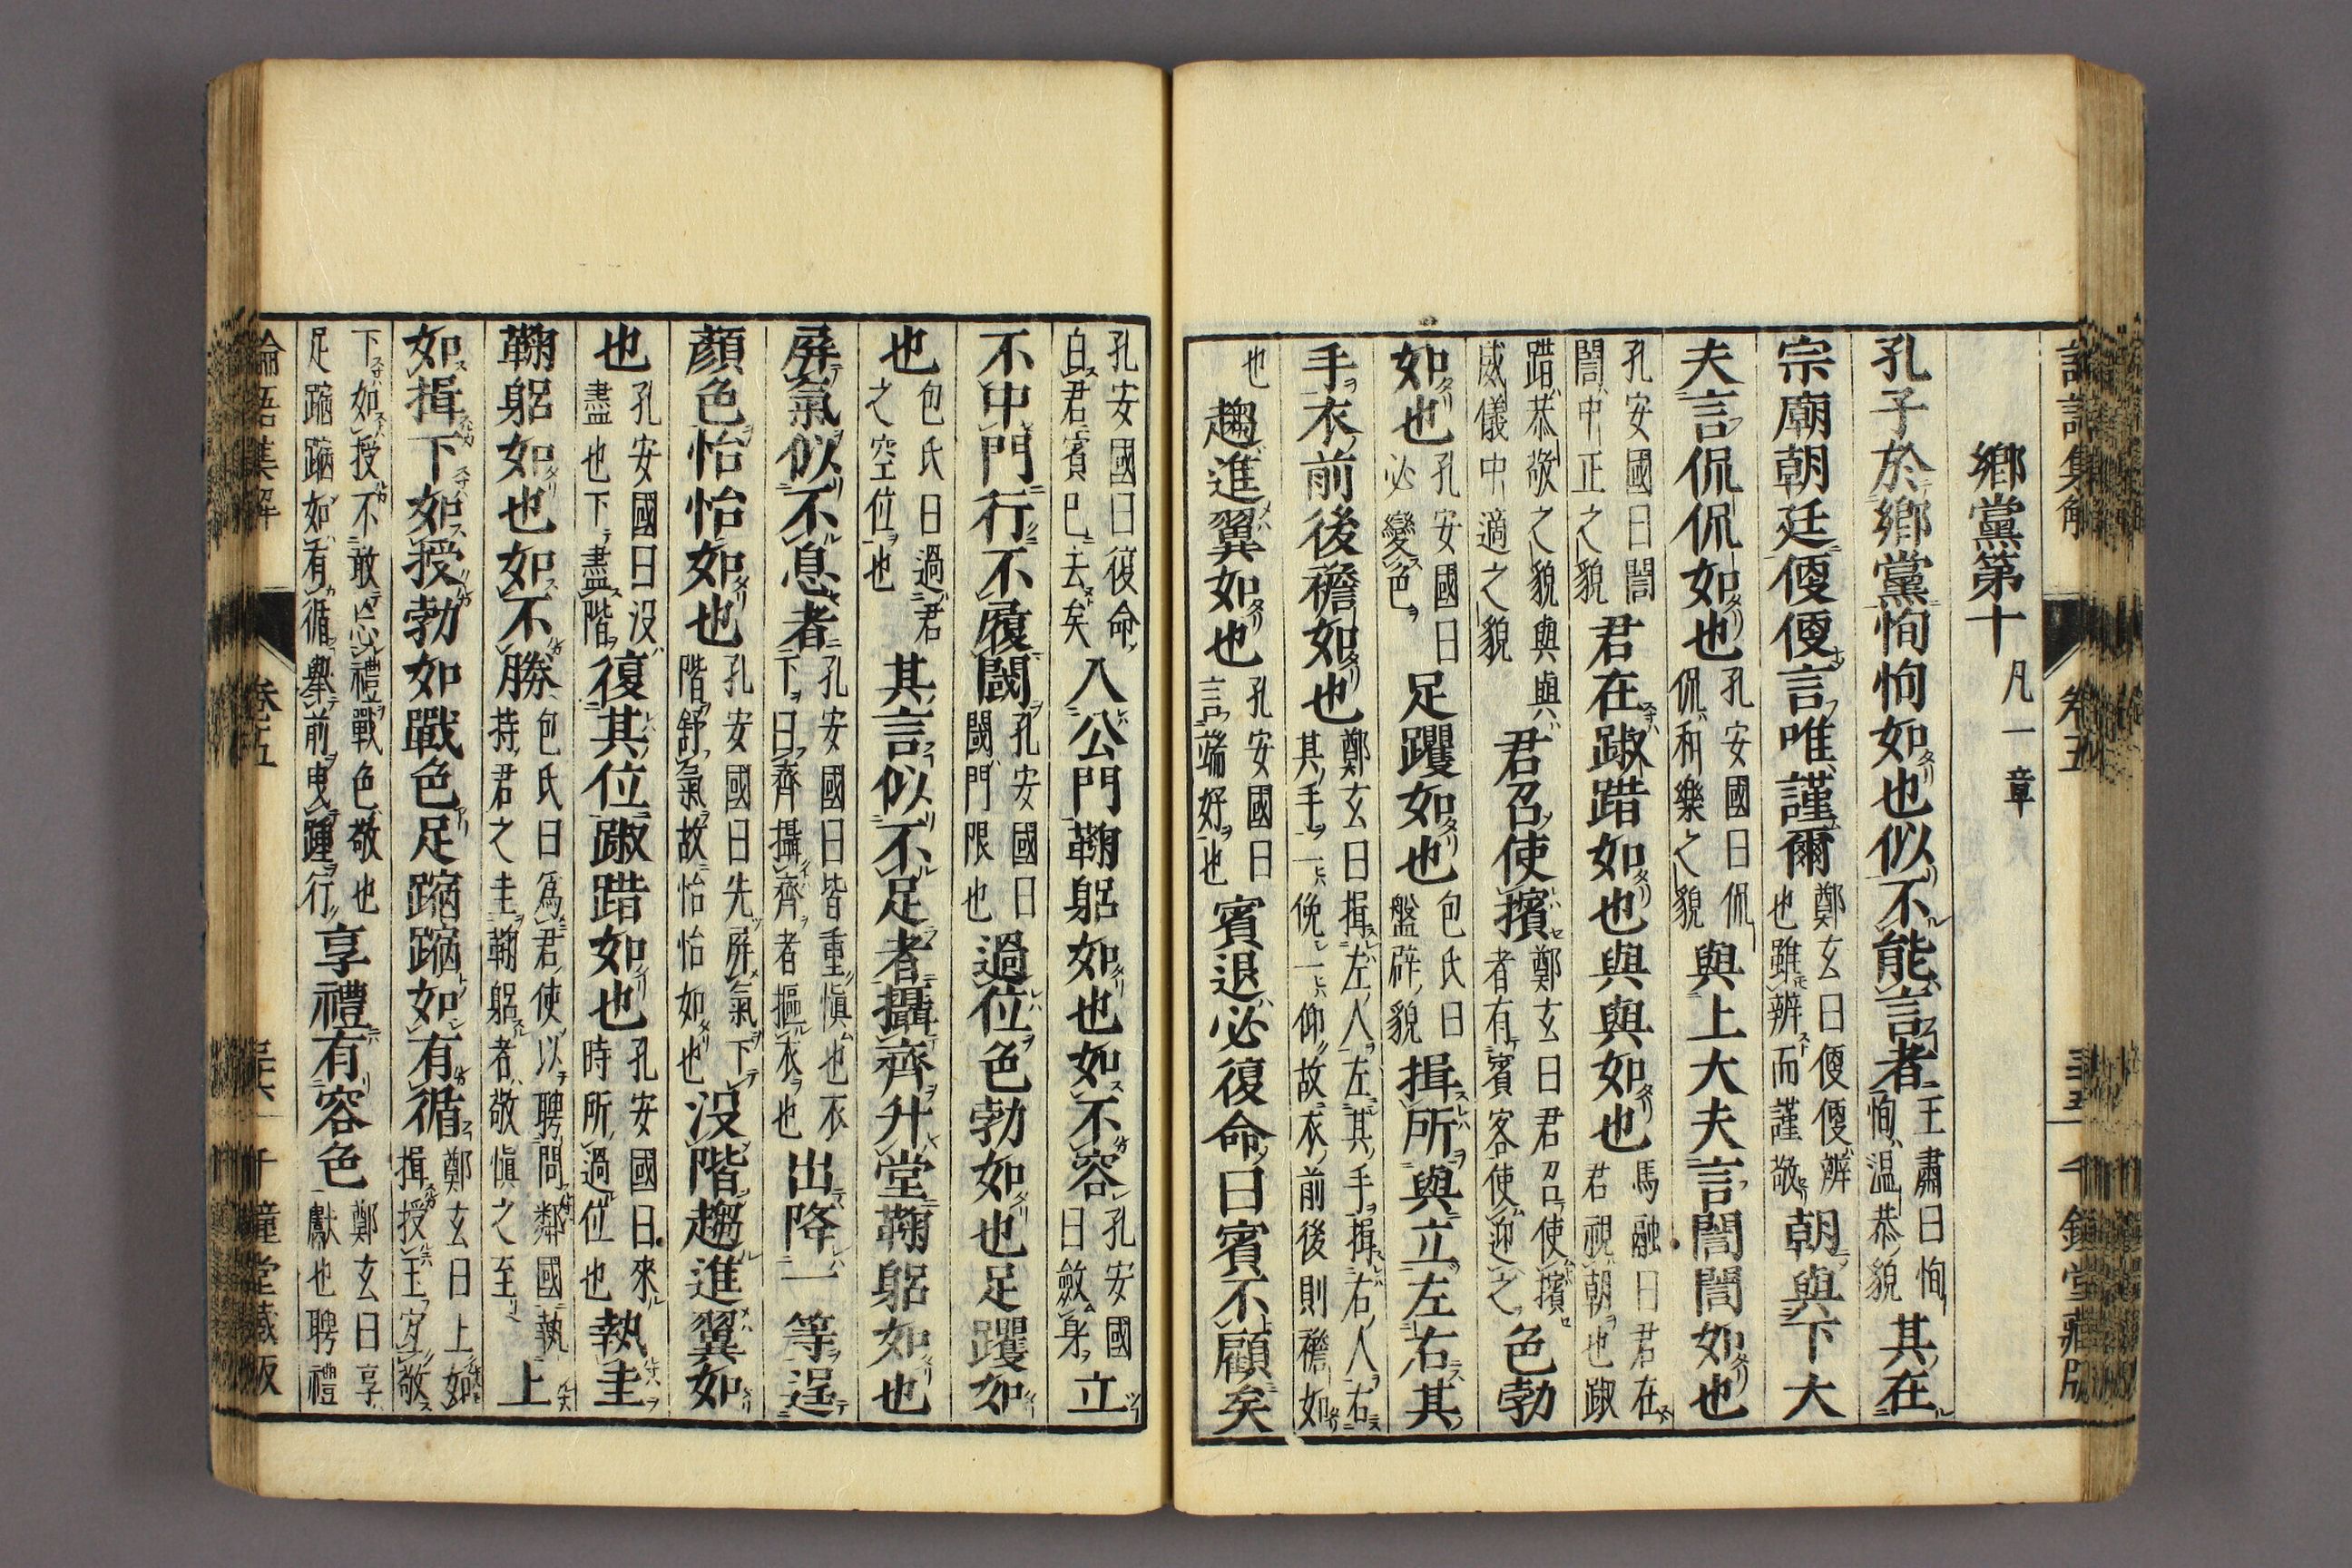 論語集解 卷五 三五 千鍾堂藏版
鄉黨第十 凡一章
孔子於鄉黨恂恂如也似不能言者 王肅曰恂恂温恭貌 其在
宗廟朝廷便便言唯謹爾 鄭玄曰便便辨也雖辨而謹敬 朝與下大
夫言侃侃如也 孔安國曰侃侃和樂之貌 與上大夫言誾誾如也
孔安國曰誾誾中正之貌 君在踧踖如也與與如也 馬融曰君在視朝也踧
踖恭敬之貌與與威儀中適之貌 君召使擯 鄭玄曰君召使擯者有賓客使迎之 色勃
如也 孔安國曰必變色 足躩如也 包氏曰盤辟貌 揖所與立左右其
手衣前後襜如也 鄭玄曰揖左人左其手揖右人右其手一俛一仰故衣前後則襜如
也 趨進翼如也 孔安國曰言端好也 賓退必復命曰賓不顧矣
孔安國曰復命白君賓已去矣 入公門鞠躬如也如不容 孔安國曰斂身 立
不中門行不履閾 孔安國曰閾門限也 過位色勃如也足躩如
也 包氏曰過君之空位也 其言似不足者攝齊升堂鞠躬如也
屏氣似不息者 孔安國曰皆重慎也衣下曰齊攝齊者摳衣也 出降一等逞
顏色怡怡如也 孔安國曰先屏氣下階舒氣故怡怡如也 没階趨進翼如
也 孔安國曰没盡也下盡階 復其位踧踖如也 孔安國曰來時所過位也 執圭
鞠躬如也如不勝 包氏曰爲君使以聘問鄰國執持君之圭鞠躬者敬慎之至 上
如揖下如授勃如戰色足蹜蹜如有循 鄭玄曰上如揖授玉宜敬
下如授不敢忘禮戰色敬也足蹜蹜如有循舉前曳踵行 享禮有容色 鄭玄曰享獻也聘禮
論語集解 卷五 三六 千鍾堂藏版